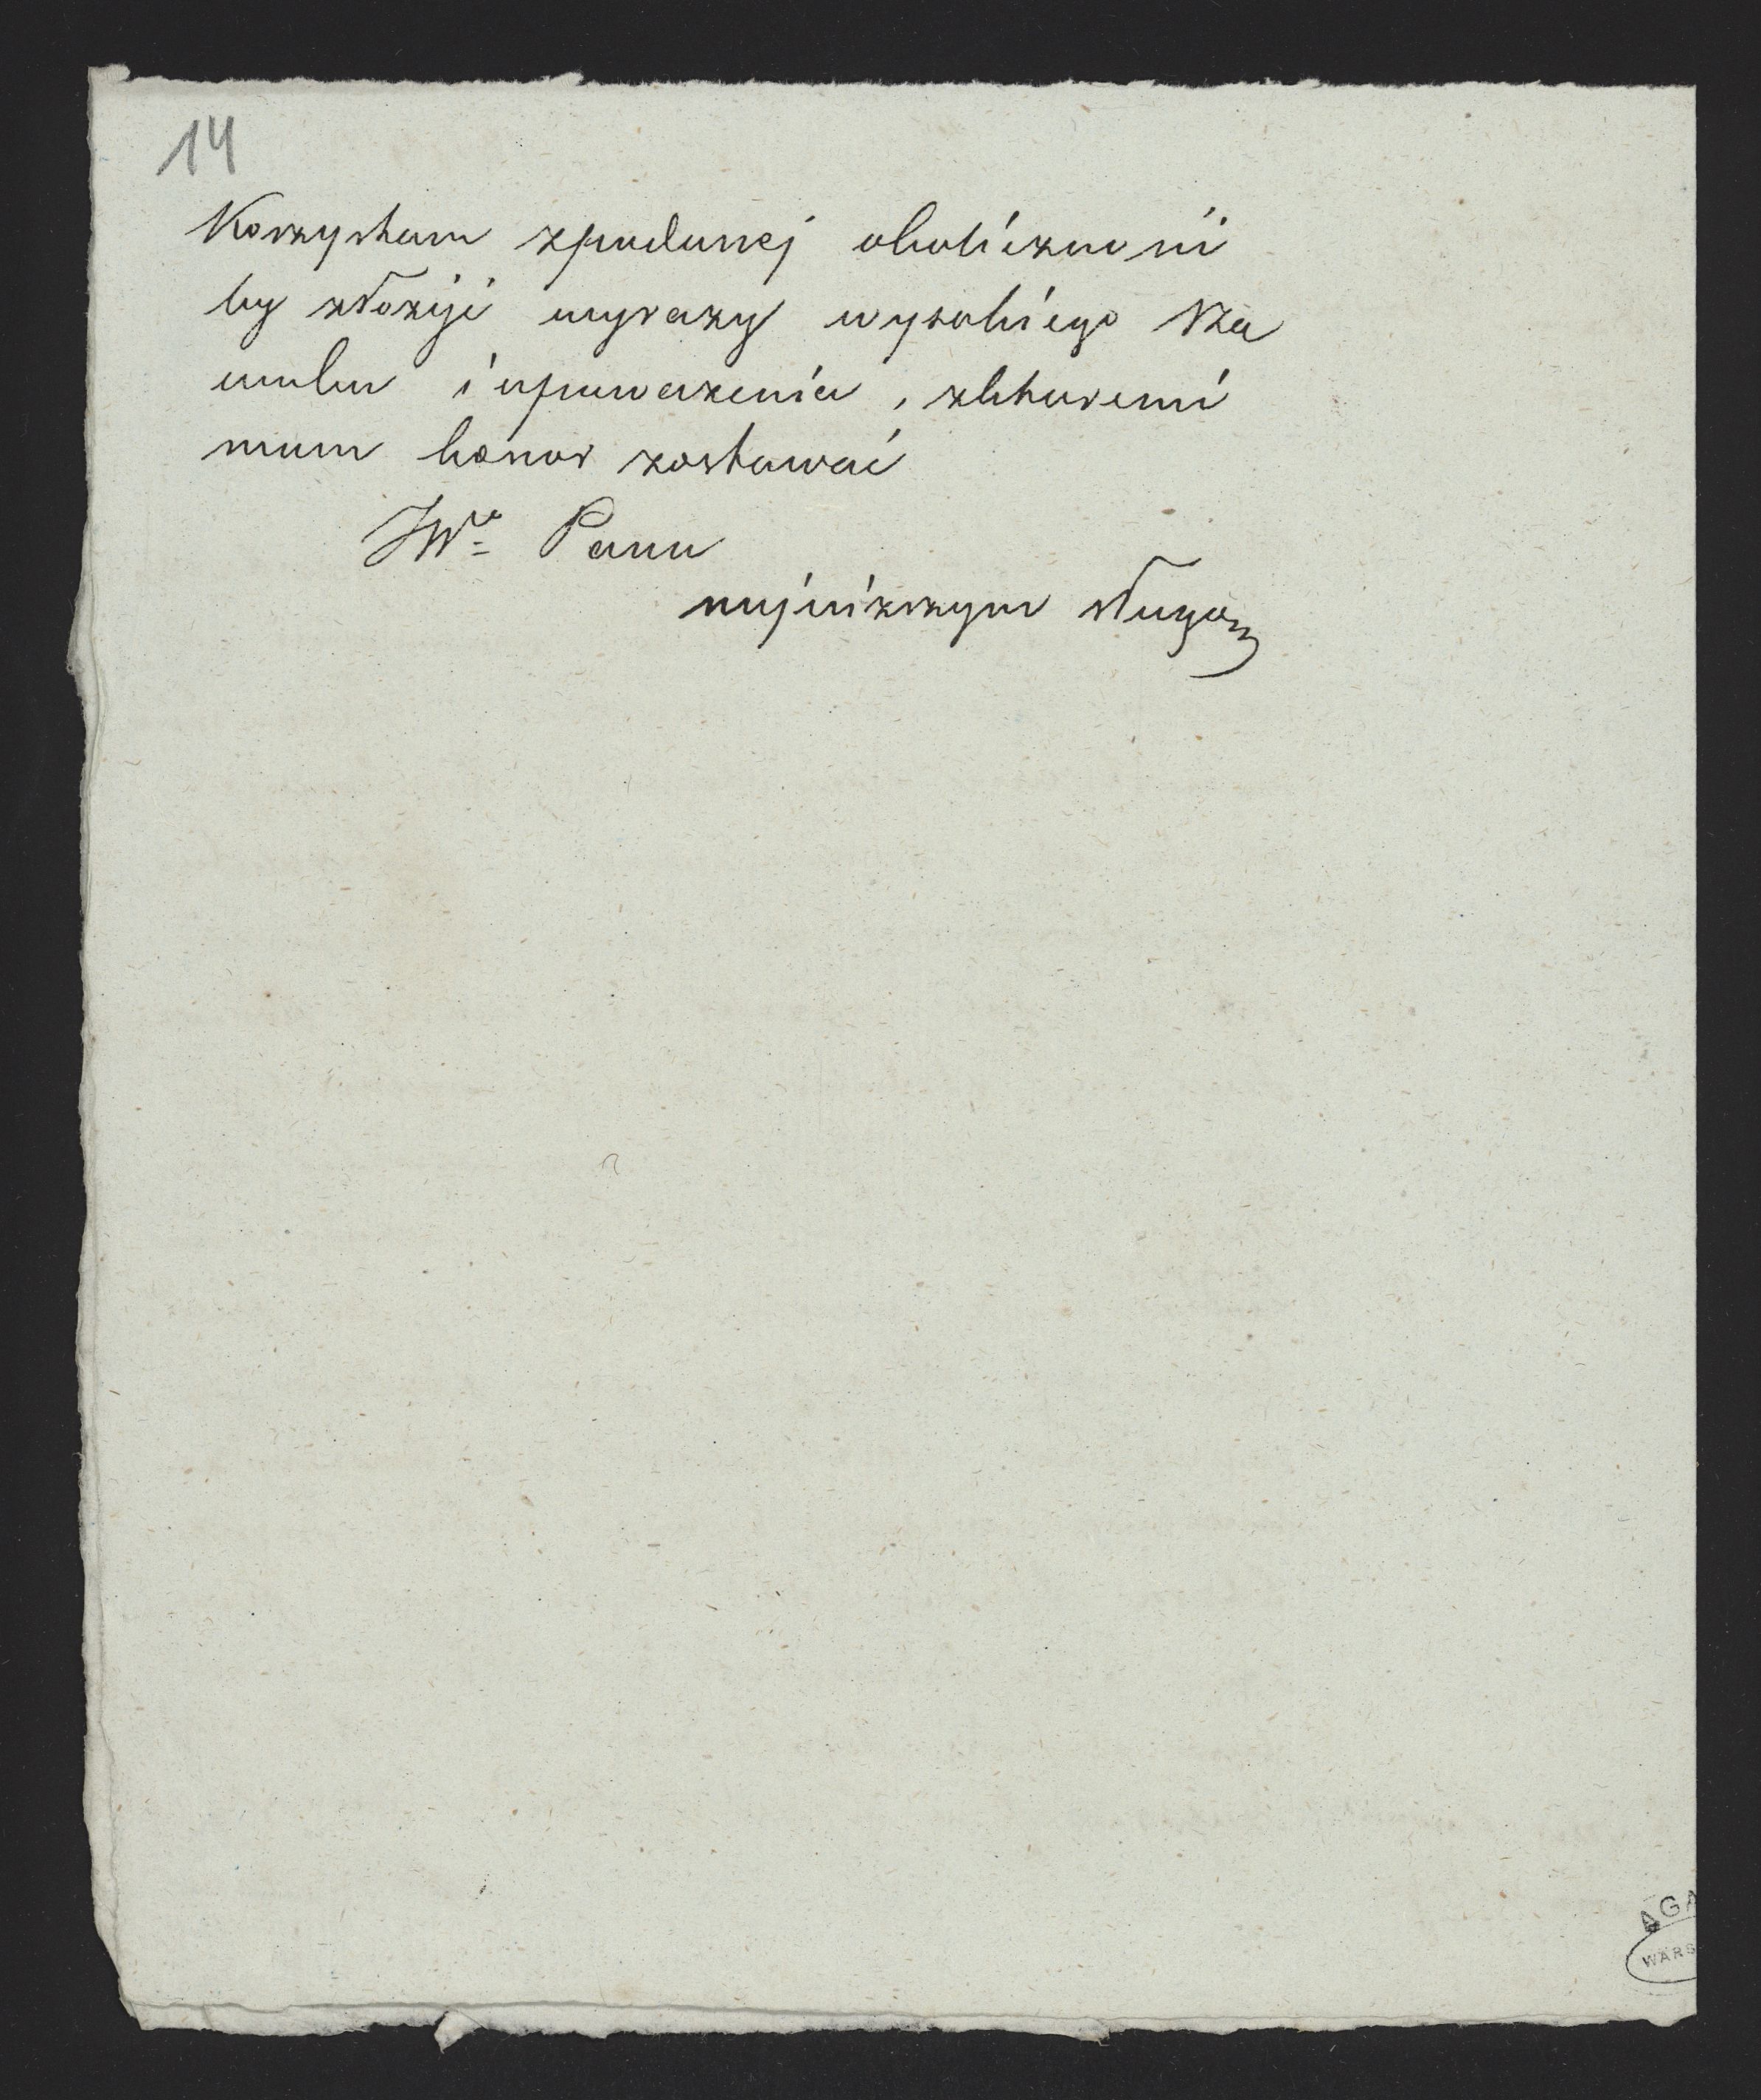 14
Korzystam z podanej okoliczności
by złożyć wyrazy wysokiego Sza
cunku i upoważenia, z któremi
mam honor zostawać
JWo Pana
najniższym sługą
AGA
WARS